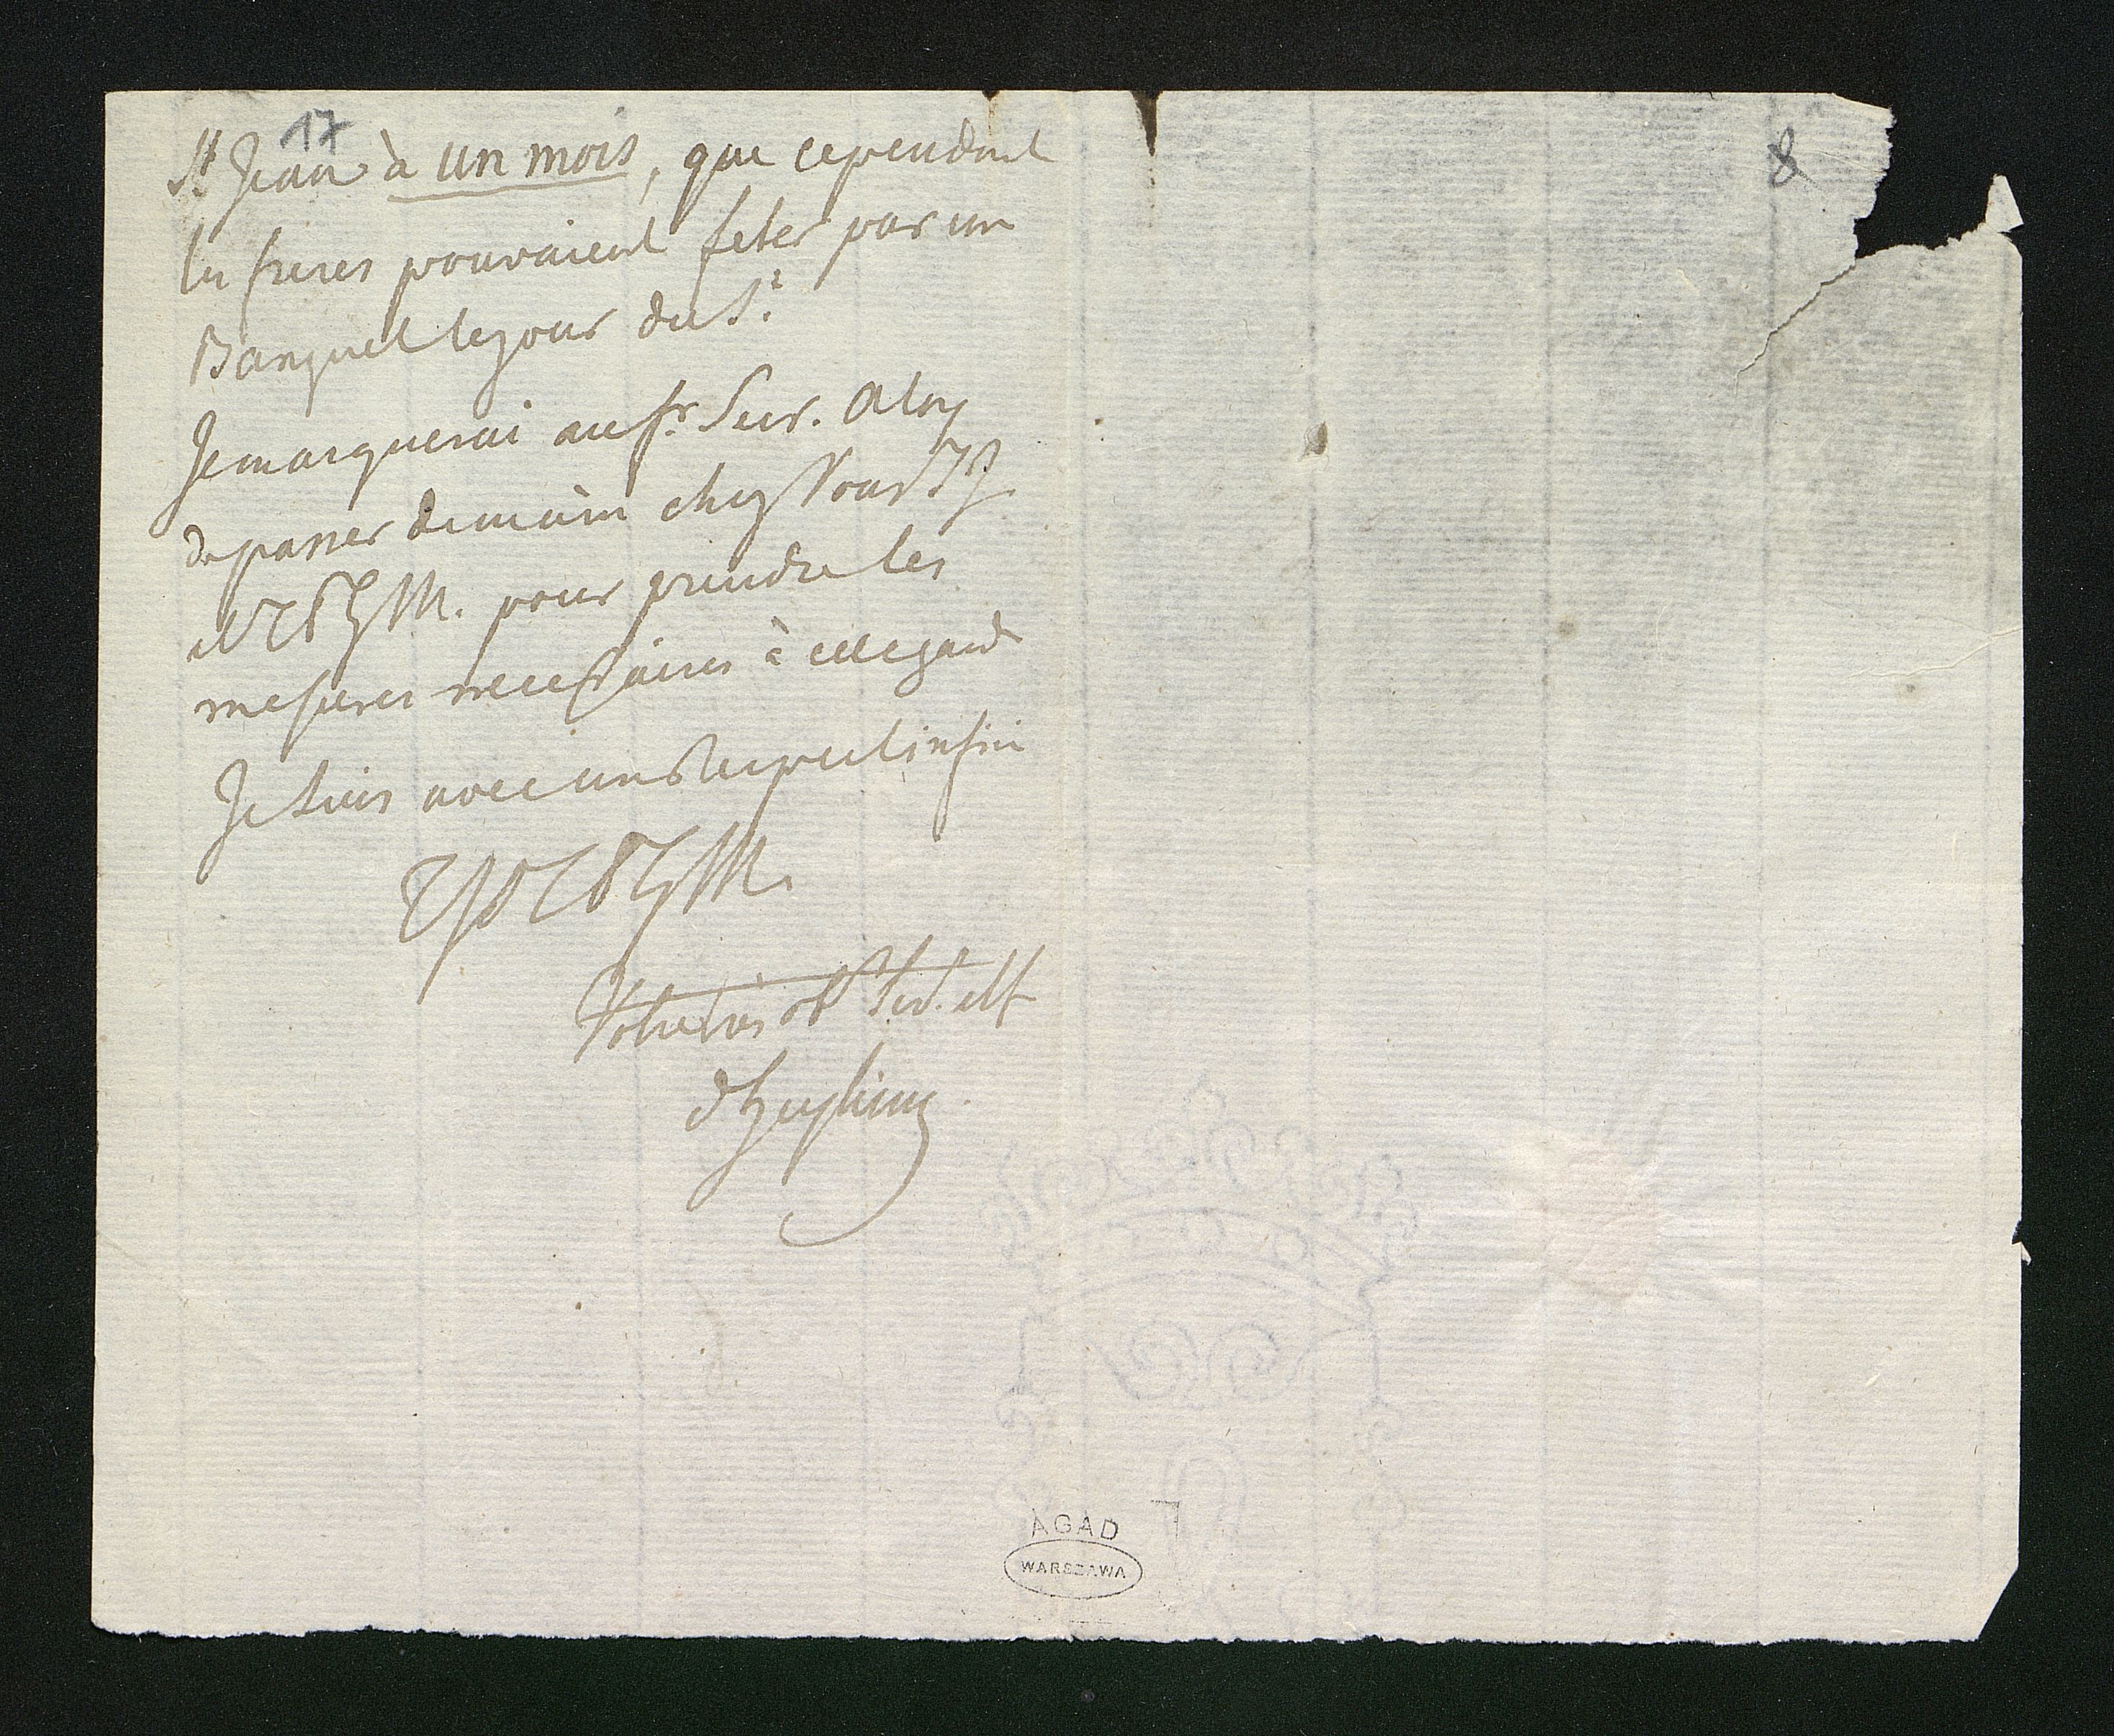 17
St Jean à un mois, que cependant
les freres pouvaient feter par un
Banquet le jour du St.
Je marquerai au fr. Secr. Aloy
de passer demain chez Vous
M. pour prendre les
mesures necessaires à cet egard
Je suis avec un Respect infini
M.
Votre très ob Serv. et f
d'Heyking
8
AGAD
WARSZAWA